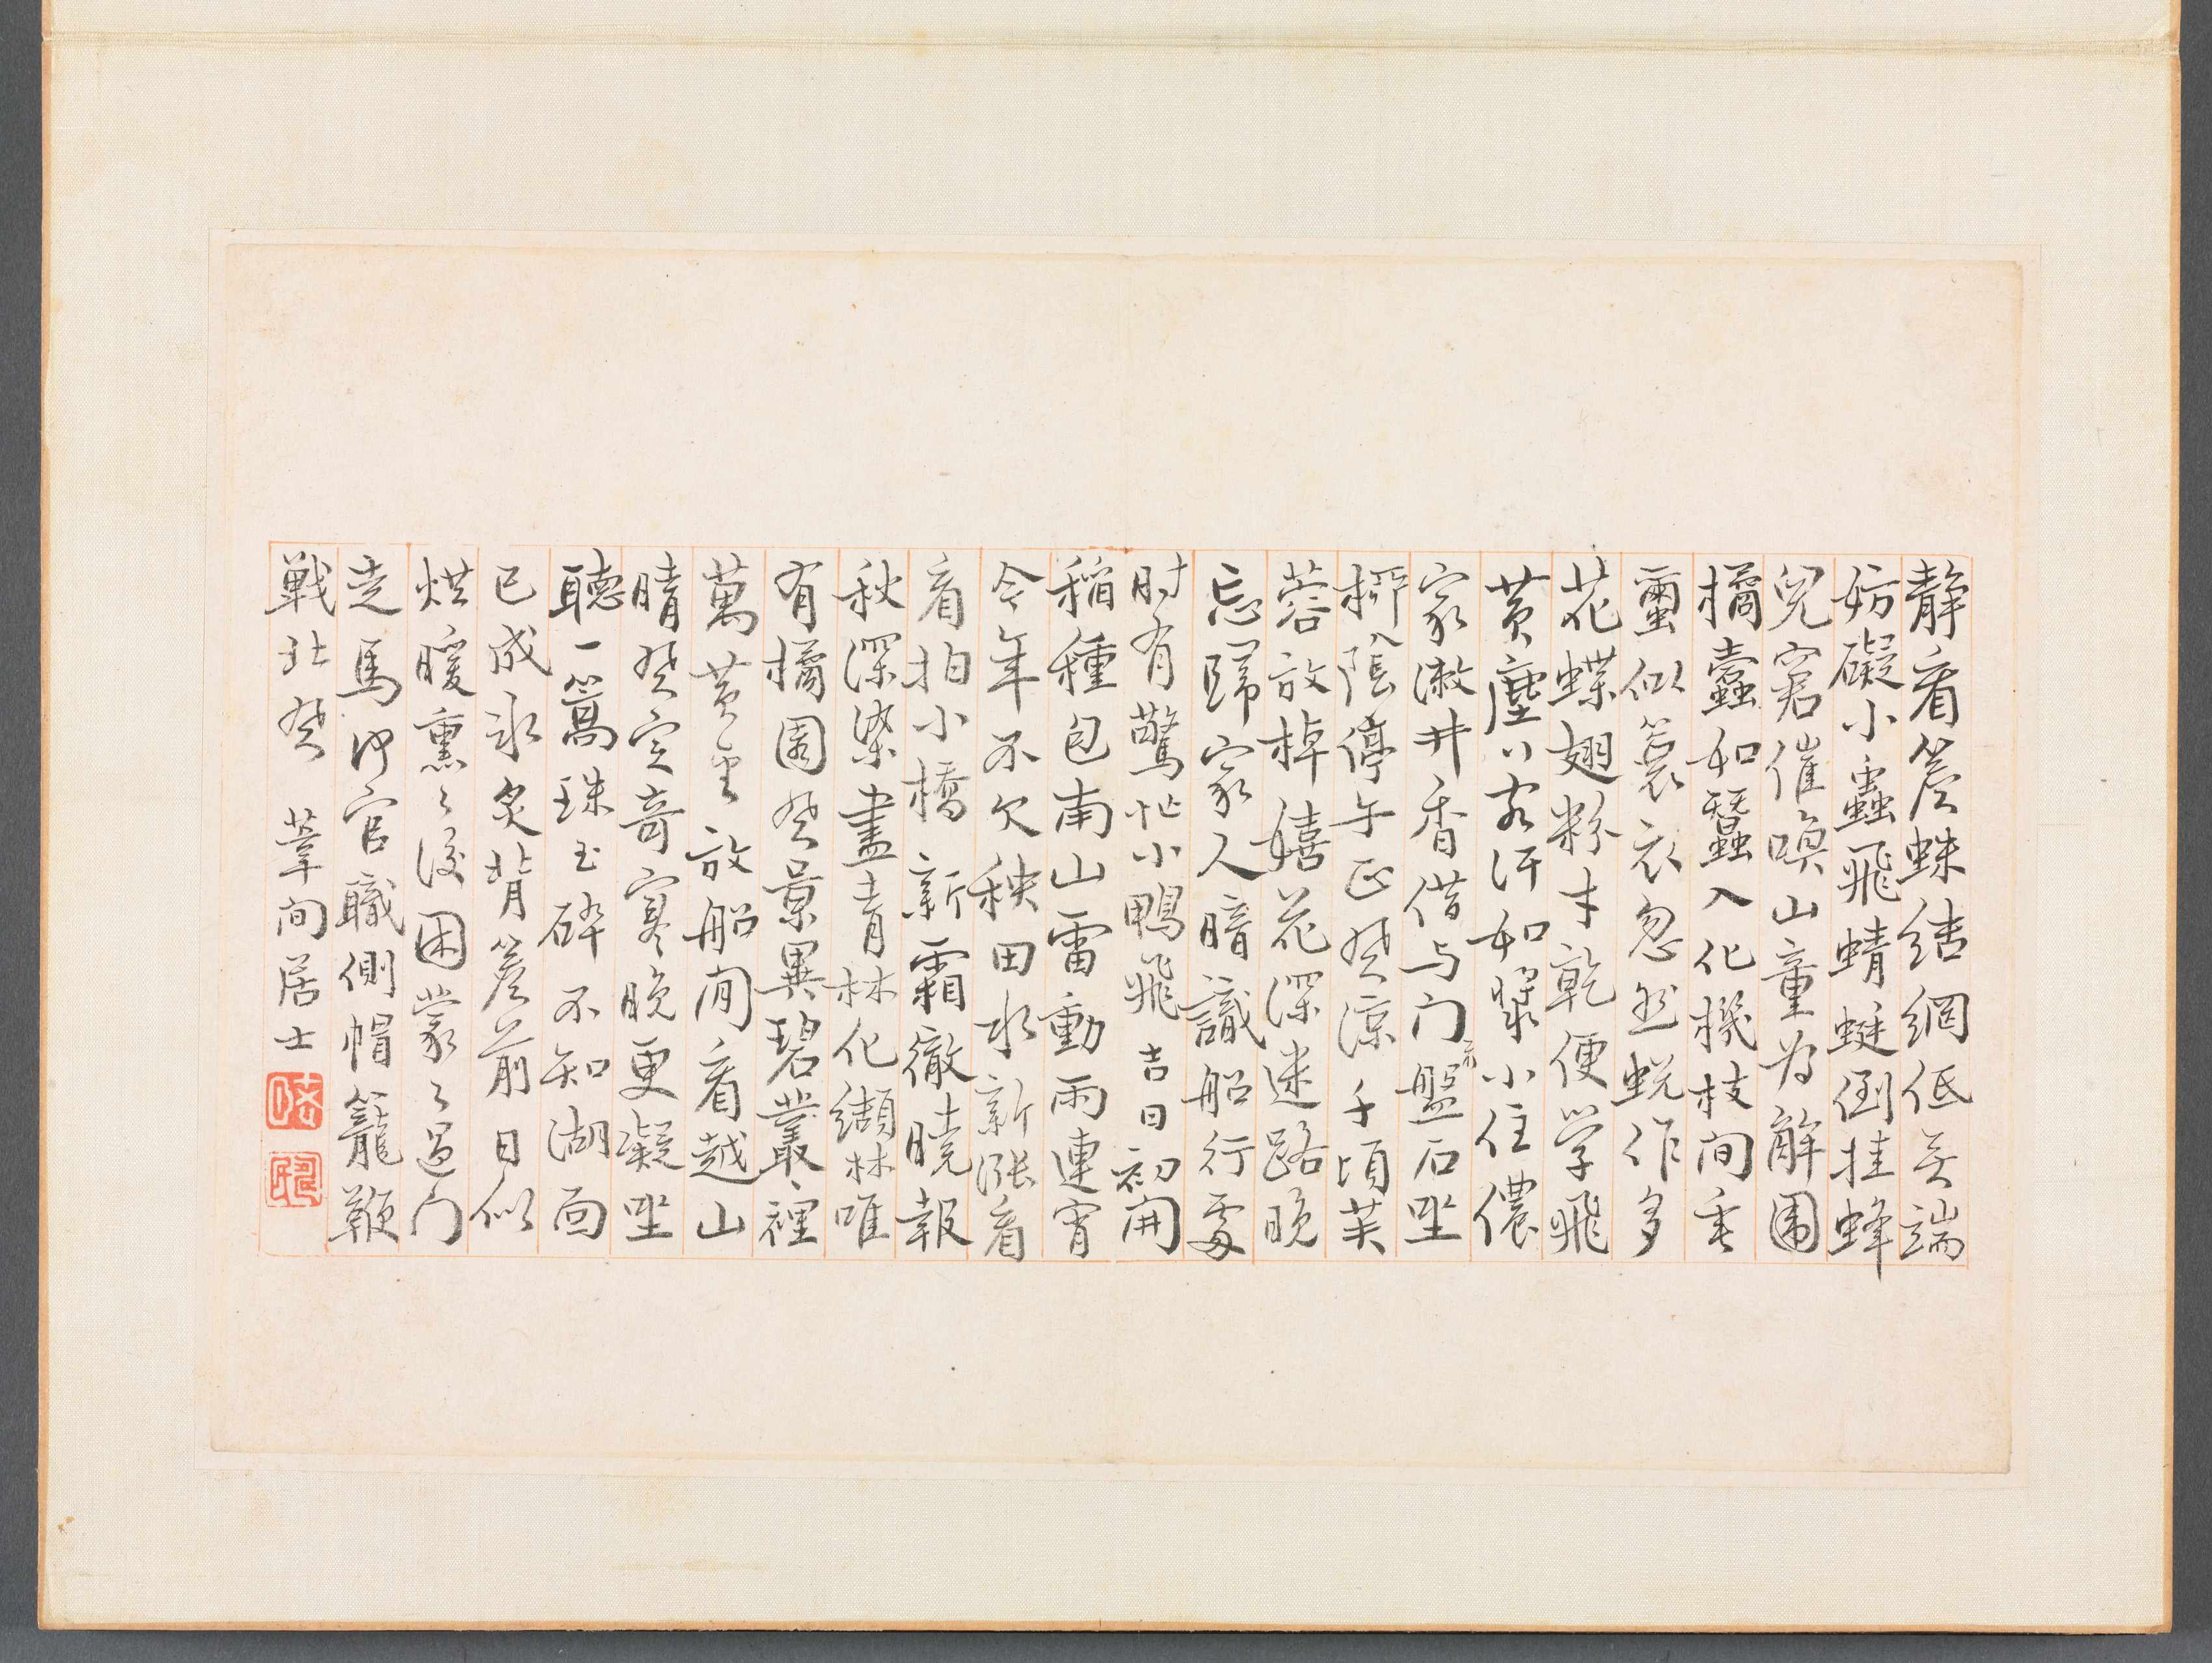 靜看簷蛛結網低無端
妨礙小蟲飛蜻蜓倒挂蜂
兒窘催喚山童為解圍
橘蠹如蠶入化機枝間垂
繭似蓑衣忽然蛻作多
花蝶翅粉才乾便學飛
黃塵行客汗如漿小住儂
家漱井香借与门前盤石坐
柳陰停午正風涼千頃芙
蓉放棹嬉花深迷路晚
忘歸家人暗識船行處
时有驚忙小鴨飛吉日初開
稲種包南山雷動雨連宵
今年不欠秧田水新漲看
看拍小橋新霜徹曉報
秋深染盡青林化纈林唯
有橘園風景異碧叢叢裡
萬黃金放船閒看越山
晴風定奇寒晚更凝坐
聽一篙珠玉碎不知湖面
已成冰炙背簷前日似
烘暖熏〻後困蒙〻過门
走馬何官職側帽籠鞭
戰北風 葦间居士